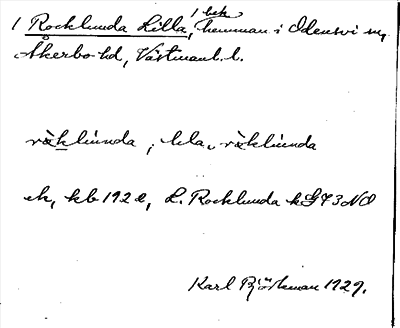 1 bek
1 Rocklunda Lilla, hemman i Odensvi sn,
Åkerbo hd, Västmanl. l.
råklũnda ; lıla, råklũnda
ek, kb 192 e, L. Rocklunda k G 73 NO
Karl Björkman 1929.